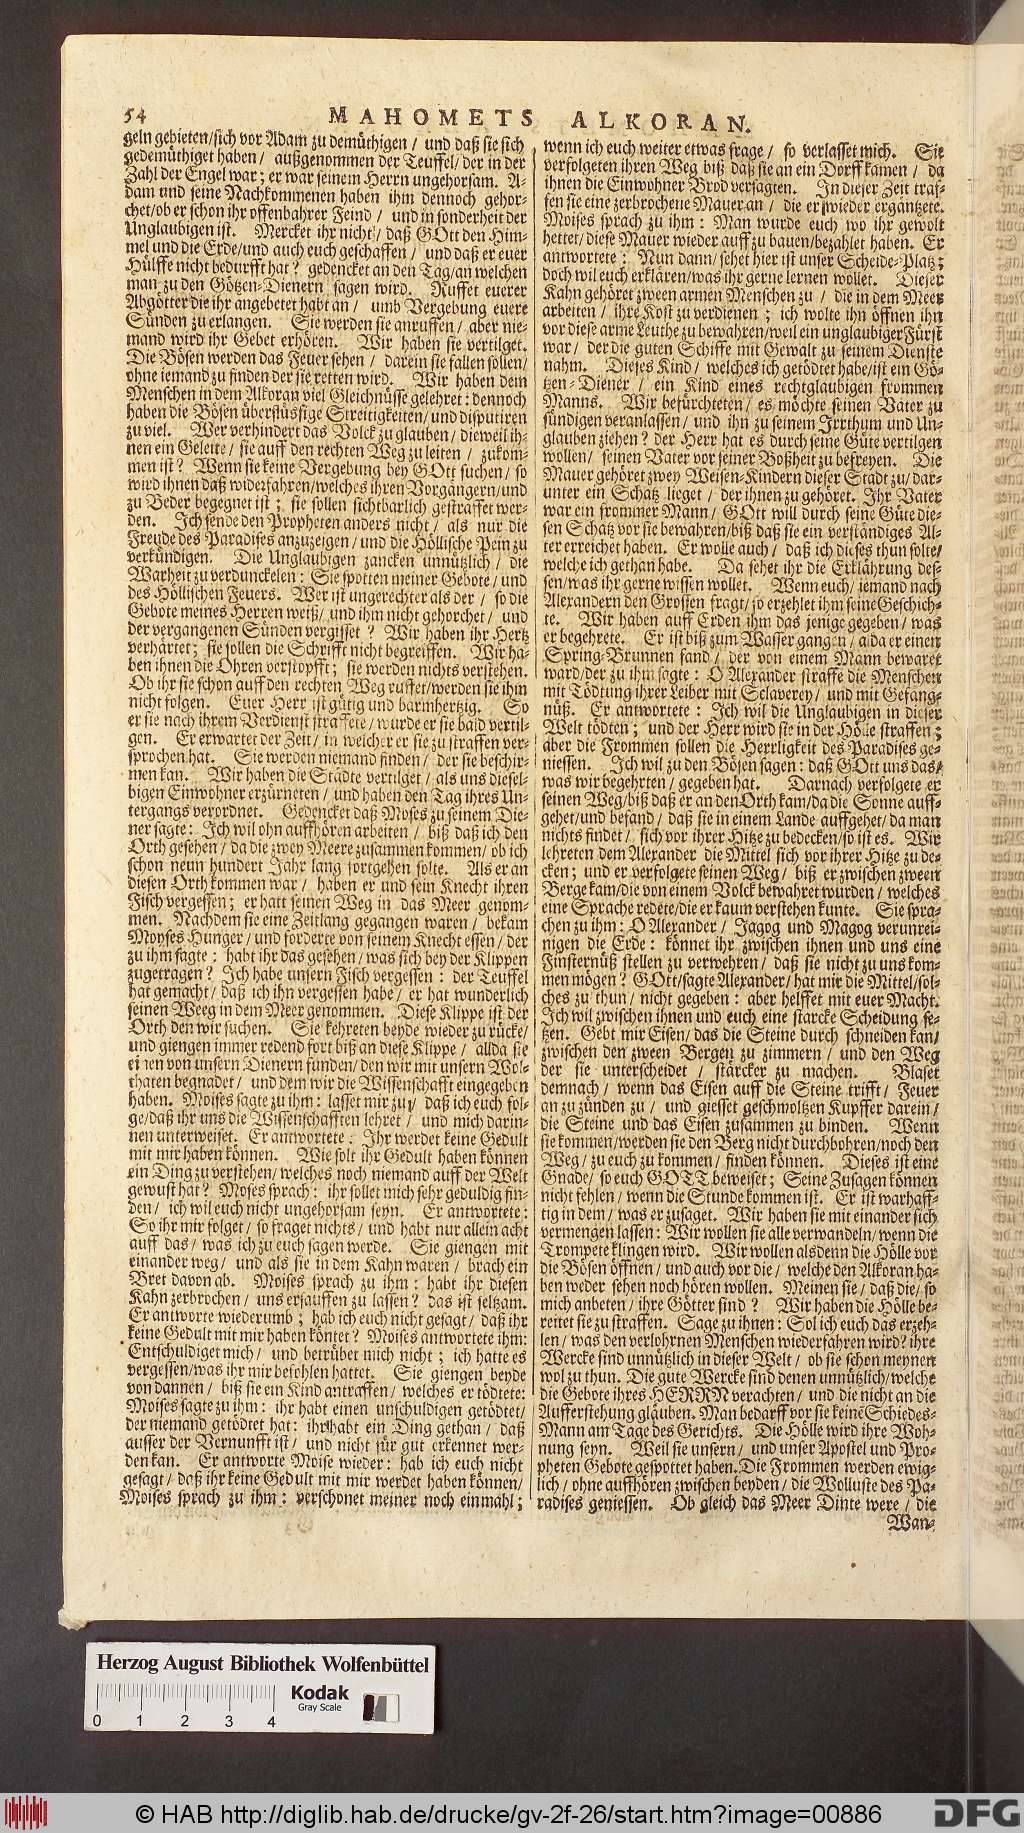 54
MAHOMETS ALKORAN.
geln gebieten/sich vor Adam zu demüthigen / und daß sie sich
gedemüthiget haben / außgenommen der Teuffel/ der in der
Zahl der Engel war; er war seinem Herrn ungehorsam. A-
dam und seine Nachkommenen haben ihm dennoch gehor-
chet/ob er schon ihr offenbahrer Feind / und in sonderheit der
Unglaubigen ist. Mercket ihr nicht / daß GOtt den Him-
mel und die Erde/und auch euch geschaffen / und daß er euer
Hülffe nicht bedurfft hat? gedencket an den Tag/an welchen
man zu den Götzen-Dienern sagen wird. Ruffet euerer
Abgötter die ihr angebetet habt an / umb Vergebung euere
Sünden zu erlangen. Sie werden sie anruffen / aber nie-
mand wird ihr Gebet erhören. Wir haben sie vertilget.
Die Bösen werden das Feuer sehen / darein sie fallen sollen/
ohne iemand zu finden der sie retten wird. Wir haben dem
Menschen in dem Alkoran viel Gleichnüsse gelehret: dennoch
haben die Bösen überflüssige Streitigkeiten/ und disputiren
zu viel. Wer verhindert das Volck zu glauben / dieweil ih-
nen ein Geleite / sie auff den rechten Weg zu leiten / zukom-
men ist? Wenn sie keine Vergebung bey GOtt suchen / so
wird ihnen daß widerfahren/welches ihren Vorgängern/und
zu Beder begegnet ist; sie sollen sichtbarlich gestraffet wer-
den. Ich sende den Propheten anders nicht / als nur die
Freude des Paradises anzuzeigen / und die Höllische Pein zu
verkündigen. Die Unglaubigen zancken unnützlich / die
Warheit zu verdunckelen: Sie spotten meiner Gebote / und
des Höllischen Feuers. Wer ist ungerechter als der / so die
Gebote meines Herren weiß/ und ihm nicht gehorchet / und
der vergangenen Sünden vergisset? Wir haben ihr Hertz
verhärtet; sie sollen die Schrifft nicht begreiffen. Wir ha-
ben ihnen die Ohren verstopfft; sie werden nichts verstehen.
Ob ihr sie schon auff den rechten Weg ruffet/werden sie ihm
nicht folgen. Euer Herr ist gütig und barmhertzig. So
er sie nach ihrem Verdienst straffete / wurde er sie bald vertil-
gen. Er erwartet der Zeit / in welcher er sie zu straffen ver-
sprochen hat. Sie werden niemand finden / der sie beschir-
men kan. Wir haben die Städte vertilget / als uns diesel-
bigen Einwohner erzürneten / und haben den Tag ihres Un-
tergangs verordnet. Gedencket daß Moses zu seinem Die-
ner sagte: Ich wil ohn auffhören arbeiten / biß daß ich den
Orth gesehen / da die zwey Meere zusammen kommen/ ob ich
schon neun hundert Jahr lang fortgehen solte. Als er an
diesen Orth kommen war / haben er und sein Knecht ihren
Fisch vergessen; er hatt seinen Weg in das Meer genom-
men. Nachdem sie eine Zeitlang gegangen waren / bekam
Moyses Hunger / und forderte von seinem Knecht essen / der
zu ihm sagte: habt ihr das gesehen/ was sich bey der Klippen
zugetragen? Ich habe unsern Fisch vergessen: der Teuffel
hat gemacht/ daß ich ihn vergessen habe / er hat wunderlich
seinen Weeg in dem Meer genommen. Diese Klippe ist der
Orth den wir suchen. Sie kehreten beyde wieder zu rücke/
und giengen immer redend fort biß an diese Klippe / allda sie
einen von unsern Dienern funden/ den wir mit unsern Wol-
thaten begnadet / und dem wir die Wissenschafft eingegeben
haben. Moises sagte zu ihm: lasset mir zu / daß ich euch fol-
ge/daß ihr uns die Wissenschafften lehret / und mich darin-
nen unterweiset. Er antwortete: Ihr werdet keine Gedult
mit mir haben können. Wie solt ihr Gedult haben können
ein Ding zu verstehen/ welches noch niemand auff der Welt
gewust hat? Moses sprach: ihr sollet mich sehr geduldig fin-
den / ich wil euch nicht ungehorsam seyn. Er antwortete:
So ihr mir folget/ so fraget nichts/ und habt nur allein acht
auff das / was ich zu euch sagen werde. Sie giengen mit
einander weg / und als sie in dem Kahn waren / brach ein
Bret davon ab. Moises sprach zu ihm: habt ihr diesen
Kahn zerbrochen / uns ersauffen zu lassen? das ist seltzam.
Er antworte wiederumb; hab ich euch nicht gesagt / daß ihr
keine Gedult mit mir haben köntet? Moises antwortete ihm:
Entschuldiget mich / und betrübet mich nicht; ich hatte es
vergessen/was ihr mir befohlen hattet. Sie giengen beyde
von dannen / biß sie ein Kind antraffen / welches er tödtete:
Moises sagte zu ihm: ihr habt einen unschuldigen getödtet/
der niemand getödtet hat: ihr habt ein Ding gethan / daß
ausser der Vernunfft ist / und nicht für gut erkennet wer-
den kan. Er antworte Moise wieder: hab ich euch nicht
gesagt / daß ihr keine Gedult mit mir werdet haben können/
Moises sprach zu ihm: verschonet meiner noch einmahl;
wenn ich euch weiter etwas frage / so verlasset mich. Sie
verfolgeten ihren Weg biß daß sie an ein Dorff kamen / da
ihnen die Einwohner Brod versagten. In dieser Zeit traf-
fen sie eine zerbrochene Mauer an / die er wieder ergäntzete.
Moises sprach zu ihm: Man wurde euch wo ihr gewolt
hettet/ diese Mauer wieder auff zu bauen/bezahlet haben. Er
antwortete: Nun dann/ sehet hier ist unser Scheide-Platz;
doch wil euch erklären/was ihr gerne lernen wollet. Dieser
Kahn gehöret zween armen Menschen zu / die in dem Meer
arbeiten / ihre Kost zu verdienen; ich wolte ihn öffnen ihn
vor diese arme Leuthe zu bewahren/weil ein unglaubiger Fürst
war / der die guten Schiffe mit Gewalt zu seinem Dienste
nahm. Dieses Kind / welches ich getödtet habe/ist ein Gö-
tzen-Diener / ein Kind eines rechtglaubigen frommen
Manns. Wir befürchteten / es möchte seinen Vater zu
sündigen veranlassen / und ihn zu seinem Irrthum und Un-
glauben ziehen? der Herr hat es durch seine Güte vertilgen
wollen / seinen Vater vor seiner Boßheit zu befreyen. Die
Mauer gehöret zwey Weisen-Kindern dieser Stadt zu/ dar-
unter ein Schatz lieget / der ihnen zu gehöret. Ihr Vater
war ein frommer Mann / GOtt will durch seine Güte die-
sen Schatz vor sie bewahren/biß daß sie ein verständiges Al-
ter erreichet haben. Er wolle auch / daß ich dieses thun solte/
welche ich gethan habe. Da sehet ihr die Erklährung des-
sen/was ihr gerne wissen wollet. Wenn euch / jemand nach
Alexandern den Grossen fragt/ so erzehlet ihm seine Geschich-
te. Wir haben auff Erden ihm das jenige gegeben / was
er begehrete. Er ist biß zum Wasser gangen / alda er einen
Spring-Brunnen fand / der von einem Mann bewaret
ward/der zu ihm sagte: O Alexander straffe die Menschen
mit Tödtung ihrer Leiber mit Sclaverey / und mit Gefäng-
nüß. Er antwortete: Ich wil die Unglaubigen in dieser
Welt tödten; und der Herr wird sie in der Hölle straffen;
aber die Frommen sollen die Herrligkeit des Paradises ge-
niessen. Ich wil zu den Bösen sagen: daß GOtt uns das/
was wir begehrten / gegeben hat. Darnach verfolgete er
seinen Weg/biß daß er an den Orth kam/da die Sonne auff-
gehet/und befand / daß sie in einem Lande auffgehet/ da man
nichts findet / sich vor ihrer Hitze zu bedecken/so ist es. Wir
lehreten dem Alexander die Mittel sich vor ihrer Hitze zu de-
cken; und er verfolgete seinen Weg / biß er zwischen zween
Berge kam/die von einem Volck bewahret wurden / welches
eine Sprache redete/die er kaum verstehen kunte. Sie spra-
chen zu ihm: O Alexander / Jagog und Magog verunrei-
nigen die Erde: könnet ihr zwischen ihnen und uns eine
Finsternüß stellen zu verwehren / daß sie nicht zu uns kom-
men mögen? GOtt/sagte Alexander/ hat mir die Mittel/sol-
ches zu thun / nicht gegeben: aber helffet mit euer Macht.
Ich wil zwischen ihnen und euch eine starcke Scheidung se-
tzen. Gebt mir Eisen/ das die Steine durch schneiden kan/
zwischen den zween Bergen zu zimmern / und den Weg
der sie unterscheidet / stärcker zu machen. Blaset
demnach / wenn das Eisen auff die Steine trifft / Feuer
an zu zünden zu / und giesset geschmoltzen Kupffer darein /
die Steine und das Eisen zusammen zu binden. Wenn
sie kommen/werden sie den Berg nicht durchbohren/noch den
Weg / zu euch zu kommen / finden können. Dieses ist eine
Gnade / so euch GOTT beweiset; Seine Zusagen können
nicht fehlen / wenn die Stunde kommen ist. Er ist warhaff-
tig in dem / was er zusaget. Wir haben sie mit einander sich
vermengen lassen: Wir wollen sie alle verwandeln/ wenn die
Trompete klingen wird. Wir wollen alsdenn die Hölle vor
die Bösen öffnen / und auch vor die / welche den Alkoran ha-
ben weder sehen noch hören wollen. Meinen sie / daß die / so
mich anbeten / ihre Götter sind? Wir haben die Hölle be-
reitet sie zu straffen. Sage zu ihnen: Sol ich euch das erzeh-
len / was den verlohrnen Menschen wiederfahren wird? ihre
Wercke sind unnützlich in dieser Welt / ob sie schon meynen
wol zu thun. Die gute Wercke sind denen unnützlich/welche
die Gebote ihres HERRN verachten / und die nicht an die
Aufferstehung gläuben. Man bedarff vor sie keine Schiedes-
Mann am Tage des Gerichts. Die Hölle wird ihre Woh-
nung seyn. Weil sie unsern / und unser Apostel und Pro-
pheten Gebote gespottet haben. Die Frommen werden ewig-
lich / ohne auffhören zwischen beyden / die Wolluste des Pa-
radises geniessen. Ob gleich das Meer Dinte were / die
Wan-
Herzog August Bibliothek Wolfenbüttel
Kodak
Gray Scale
0 1 2 3 4
© HAB http://diglib.hab.de/drucke/gv-2f-26/start.htm?image=00886
DFG